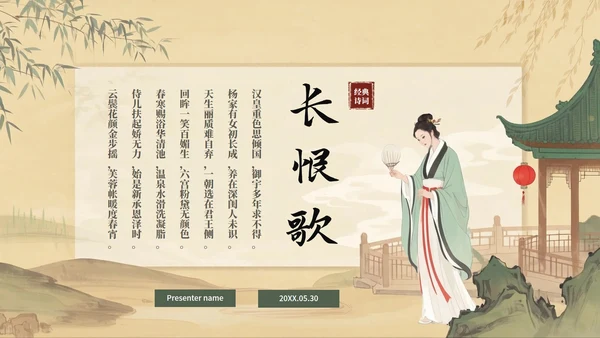 长恨歌
经典
诗词
汉皇重色思倾国，御宇多年求不得。
杨家有女初长成，养在深闺人未识。
天生丽质难自弃，一朝选在君王侧。
回眸一笑百媚生，六宫粉黛无颜色。
春寒赐浴华清池，温泉水滑洗凝脂。
侍儿扶起娇无力，始是新承恩泽时。
云鬓花颜金步摇，芙蓉帐暖度春宵。
Presenter name
20XX.05.30